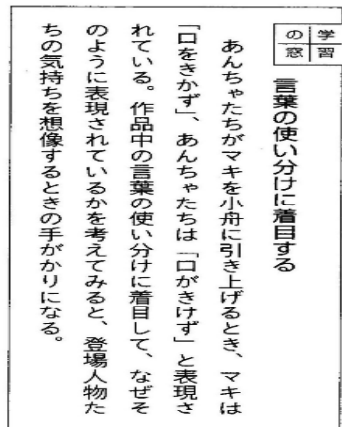 学習の窓
言葉の使い分けに着目する
あんちゃたちがマキを小舟に引き上げるとき、マキは
「口をきかず」、あんちゃたちは「口がきけず」と表現さ
れている。作品中の言葉の使い分けに着目して、なぜそ
のように表現されているかを考えてみると、登場人物た
ちの気持ちを想像するときの手がかりになる。